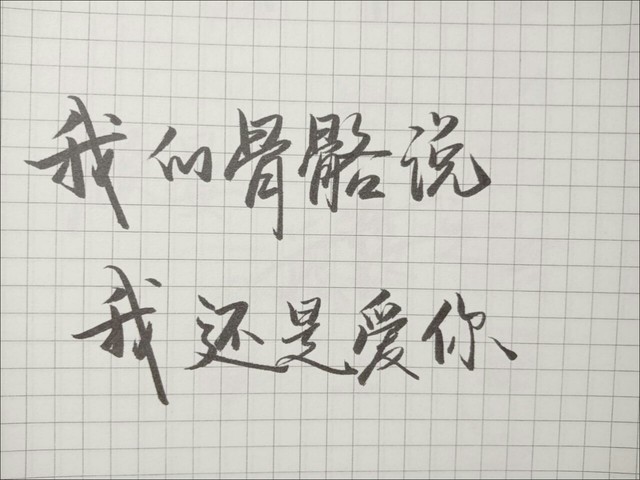 我们骨骼说
我还是爱你